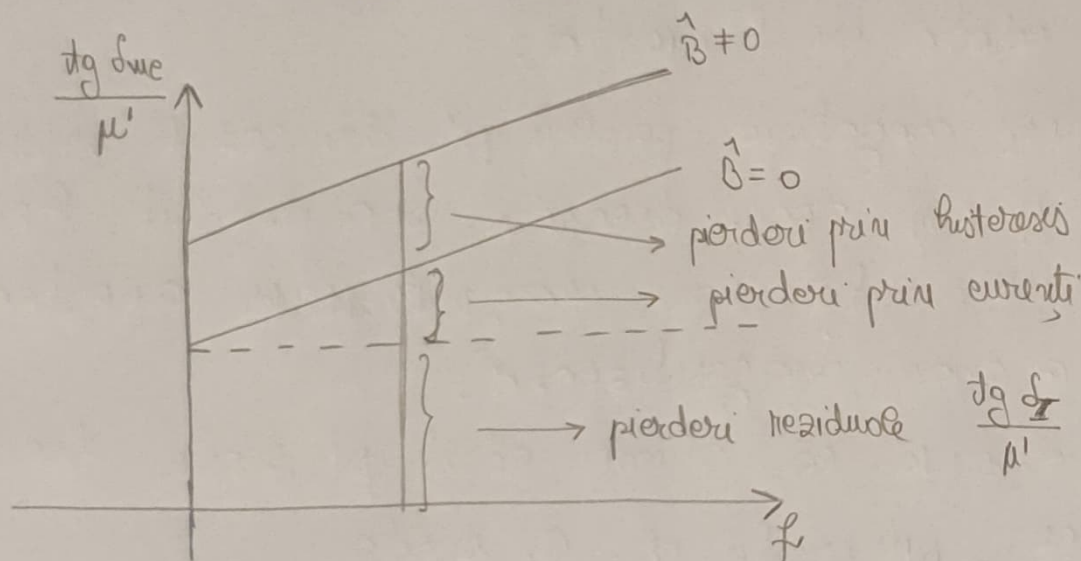 tg δme
μ'
B̂ ≠ 0
B̂ = 0
pierderi prin histeresis
pierderi prin curenți
pierderi reziduale tg δr
μ'
f